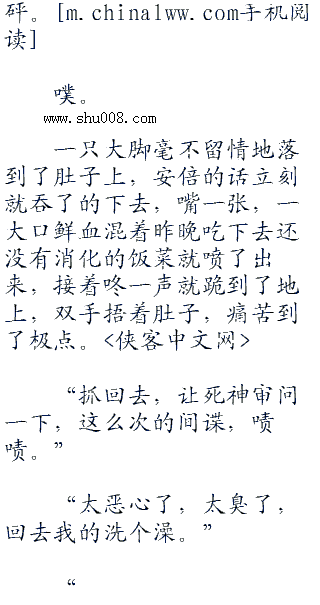 砰。[m.china1ww.com手机阅
读]
噗。
www.shu008.com
一只大脚毫不留情地落
到了肚子上，安倍的话立刻
就吞了的下去，嘴一张，一
大口鲜血混着昨晚吃下去还
没有消化的饭菜就喷了出
来，接着咚一声就跪到了地
上，双手捂着肚子，痛苦到
了极点。<侠客中文网>
“抓回去，让死神审问
一下，这么次的间谍，啧
啧。”
“太恶心了，太臭了，
回去我的洗个澡。”
“